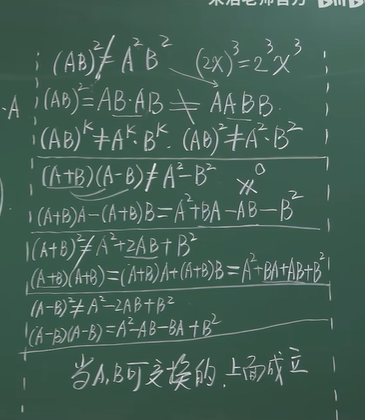 宋浩老师官方 bilibili
(AB)²≠A²B² (2x)³=2³x³
·A (AB)²=AB·AB≠AABB.
(AB)ᴷ≠Aᴷ·Bᴷ. (AB)²≠A²·B²
(A+B)(A-B)≠A²-B²
(A+B)A-(A+B)B=A²+BA-AB-B²
(A+B)²≠A²+2AB+B²
(A+B)(A+B)=(A+B)A+(A+B)B=A²+BA+AB+B²
(A-B)²≠A²-2AB+B²
(A-B)(A-B)=A²-AB-BA+B²
当A,B可交换的,上面成立